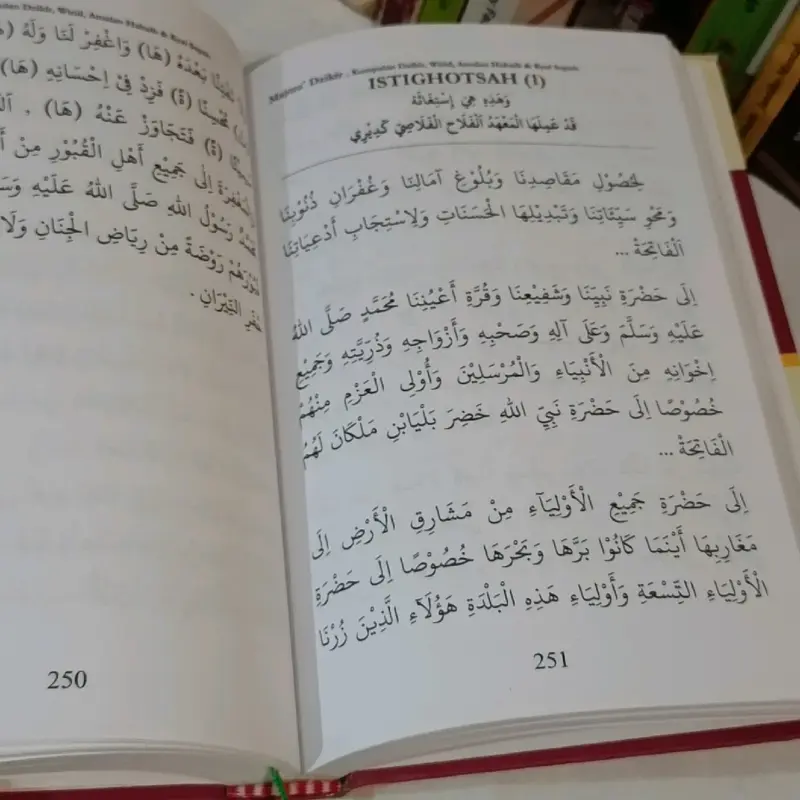 Dzikir, Wirid, Amalan Habaib & Rest Sepuh
بَعْدَهُ (هَا) وَاغْفِرْ لَنَا وَلَهُ
مُحْسِنًا (ةً) فَزِدْ فِيْ اِحْسَانِهِ (هَا)
(ةً) فَتَجَاوَزْ عَنْهُ (هَا) ,
اِلَى جَمِيْعِ أَهْلِ الْقُبُوْرِ مِنْ
رَسُوْلُ اللهِ صَلَّى اللهُ عَلَيْهِ
رَوْضَةً مِنْ رِيَاضِ الْجِنَانِ وَلَا
النِّيْرَانِ .
250
Majmu' Dzikir , Kumpulan Dzikir, Wirid, Amalan Habaib & Rest Sepuh
ISTIGHOTSAH (1)
وَهَذِهِ هِيَ إِسْتِغَاثَةُ
قَدْ عَمِلَهَا الْمَعْهَدُ الْفَلَاحْ الْفَلَاصِيْ كَدِيْرِي
لِحُصُوْلِ مَقَاصِدِنَا وَبُلُوْغِ آمَالِنَا وَغُفْرَانِ ذُنُوْبِنَا
وَمَحْوِ سَيِّئَاتِنَا وَتَبْدِيْلِهَا الْحَسَنَاتِ وَلِاسْتِجَابِ أَدْعِيَاتِنَا
اَلْفَاتِحَةْ ...
اِلَى حَضْرَةِ نَبِيِّنَا وَشَفِيْعِنَا وَقُرَّةِ أَعْيُنِنَا مُحَمَّدٍ صَلَّى اللهُ
عَلَيْهِ وَسَلَّمَ وَعَلَى آلِهِ وَصَحْبِهِ وَأَزْوَاجِهِ وَذُرِّيَّتِهِ وَجَمِيْعِ
اِخْوَانِهِ مِنَ الْأَنْبِيَاءِ وَالْمُرْسَلِيْنَ وَأُوْلِى الْعَزْمِ مِنْهُمْ
خُصُوْصًا اِلَى حَضْرَةِ نَبِيِّ اللهِ خَضِرَ بَلْيَابْنِ مَلْكَانَ لَهُمُ
الْفَاتِحَةْ ...
اِلَى حَضْرَةِ جَمِيْعِ الْأَوْلِيَآءِ مِنْ مَشَارِقِ الْأَرْضِ اِلَى
مَغَارِبِهَا أَيْنَمَا كَانُوْا بَرَّهَا وَبَحْرَهَا خُصُوْصًا اِلَى حَضْرَةِ
الْأَوْلِيَاءِ التِّسْعَةِ وَأَوْلِيَاءِ هَذِهِ الْبَلْدَةِ هَؤُلَآءِ الَّذِيْنَ زُرْنَا
251